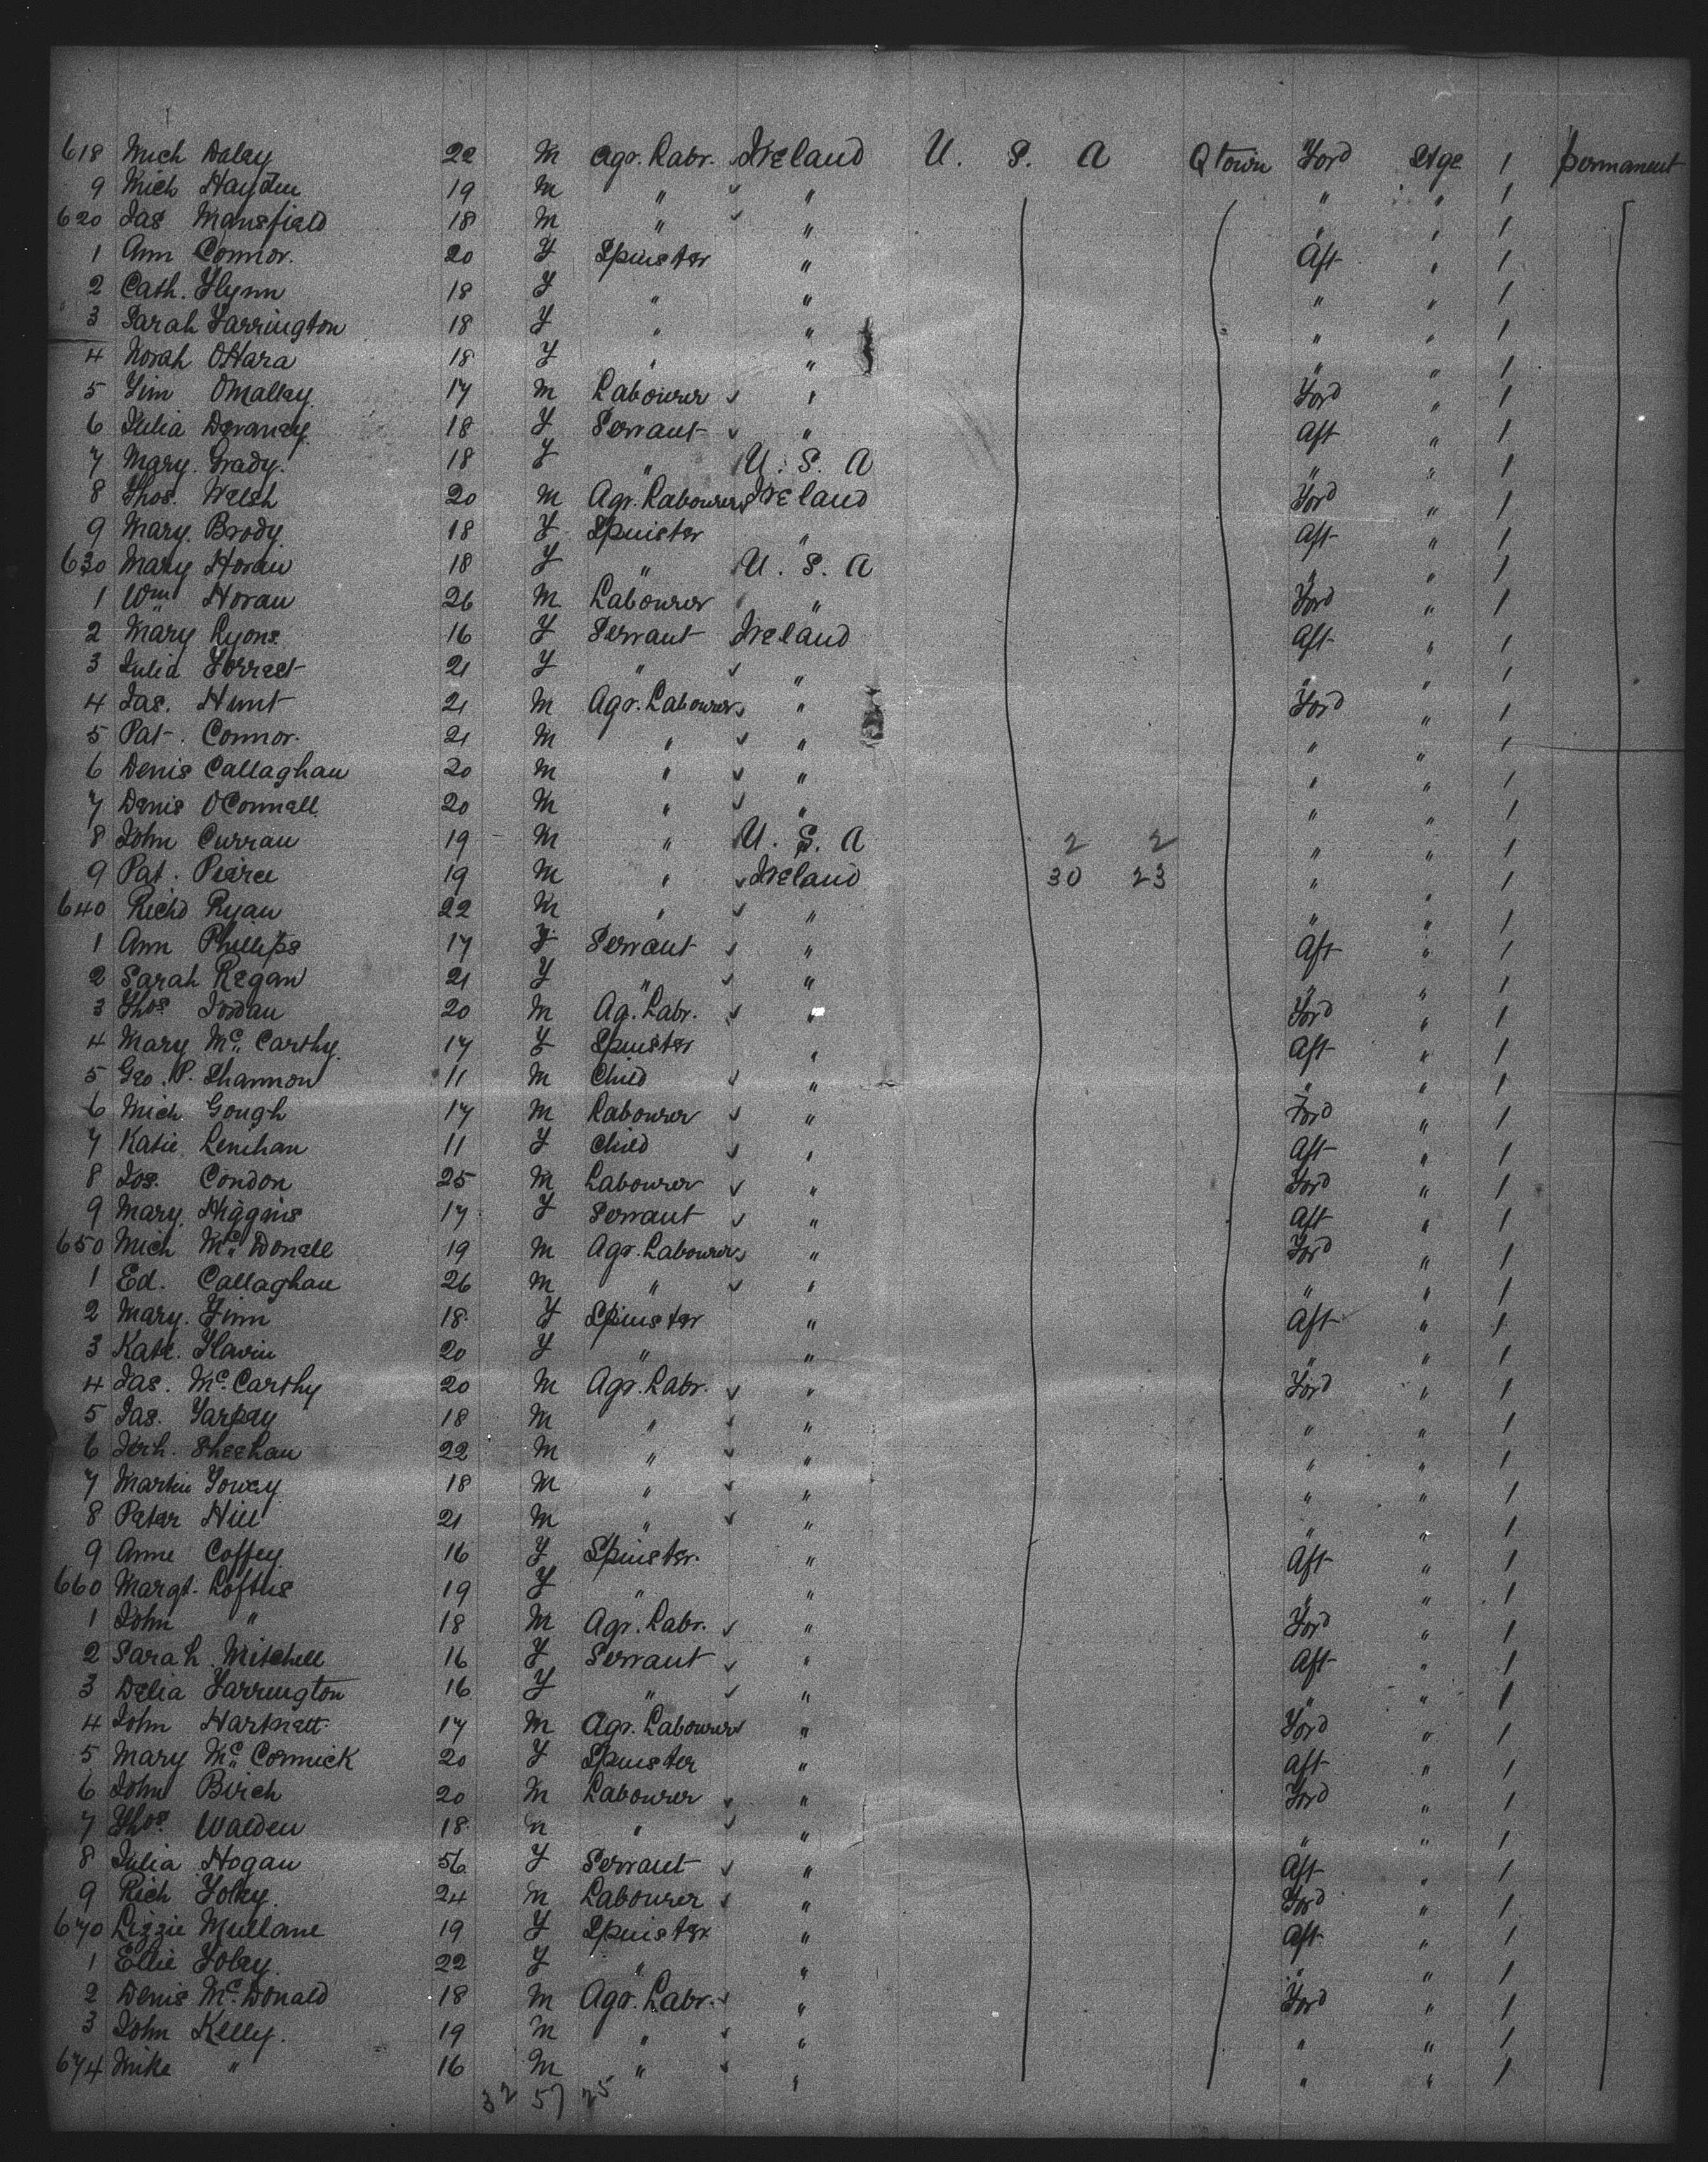 618 Mich Daley 22 M Agr. Labr. Ireland U. S. A Q town Ford Stge 1 permanent
9 Mich Hayden 19 M " " " " 1
620 Jas Mansfield 18 M " " " " 1
1 Ann Connor. 20 F Spinster " Aft " 1
2 Cath. Flynn 18 F " " " " 1
3 Sarah Farrington 18 F " " " " 1
4 Norah OHara 18 F " " " " 1
5 Jim OMalley 17 M Labourer " Ford " 1
6 Julia Devaney 18 F Servant " Aft " 1
7 Mary. Grady. 18 F " U. S. A " " 1
8 Thos. Welsh 20 M Agr. Labourer Ireland Ford " 1
9 Mary. Brody. 18 F Spinster " Aft " 1
630 Mary Horan 18 F " U. S. A " " 1
1 Wm Horan 26 M Labourer " Ford " 1
2 Mary Lyons 16 F Servant Ireland Aft " 1
3 Julia Forrest 21 F " " " " 1
4 Jas. Hunt 21 M Agr. Labourer " Ford " 1
5 Pat. Connor. 21 M " " " " 1
6 Denis Callaghan 20 M " " " " 1
7 Denis OConnell 20 M " " " " 1
8 John Curran 19 M " U. S. A 2 2 " " 1
9 Pat. Pierce 19 M " Ireland 30 23 " " 1
640 Richd Ryan 22 M " " " " 1
1 Ann Phillips 17 F Servant " Aft " 1
2 Sarah Regan 21 F " " " " 1
3 Thos Jordan 20 M Ag. Labr. " Ford " 1
4 Mary Mc Carthy. 17 F Spinster " Aft " 1
5 Geo. P. Shannon 11 M Child " " " 1
6 Mich Gough 17 M Labourer " Ford " 1
7 Katie Lenihan 11 F Child " Aft " 1
8 Jos. Condon 25 M Labourer " Ford " 1
9 Mary. Higgins 17 F Servant " Aft " 1
650 Mich Mc Donell 19 M Agr. Labourer " Ford " 1
1 Ed. Callaghan 26 M " " " " 1
2 Mary. Finn 18 F Spinster " Aft " 1
3 Kate. Flavin 20 F " " " " 1
4 Jas. Mc Carthy 20 M Agr. Labr. " Ford " 1
5 Jas. Tarpey 18 M " " " " 1
6 Jerh. Sheehan 22 M " " " " 1
7 Martin 18 M " " " " 1
8 Peter Hill 21 M " " " " 1
9 Anne Coffey 16 F Spinster. " Aft " 1
660 Margt. Loftus 19 F " " " " 1
1 John " 18 M Agr. Labr. " Ford " 1
2 Sarah Mitchell 16 F Servant " Aft " 1
3 Delia Farrington 16 F " " " " 1
4 John Hartnett 17 M Agr. Labourer " Ford " 1
5 Mary Mc Cormick 20 F Spinster " Aft " 1
6 John Birch 20 M Labourer " Ford " 1
7 Thos Walden 18 M " " " " 1
8 Julia Hogan 56 F Servant " Aft " 1
9 Rich Foley. 24 M Labourer " Ford " 1
670 Lizzie Mullane 19 F Spinster " Aft " 1
1 Ellie Foley. 22 F " " " " 1
2 Denis Mc Donald 18 M Agr. Labr. " Ford " 1
3 John Kelly. 19 M " " " " 1
674 Mike " 16 M " " " " 1
32 57 25